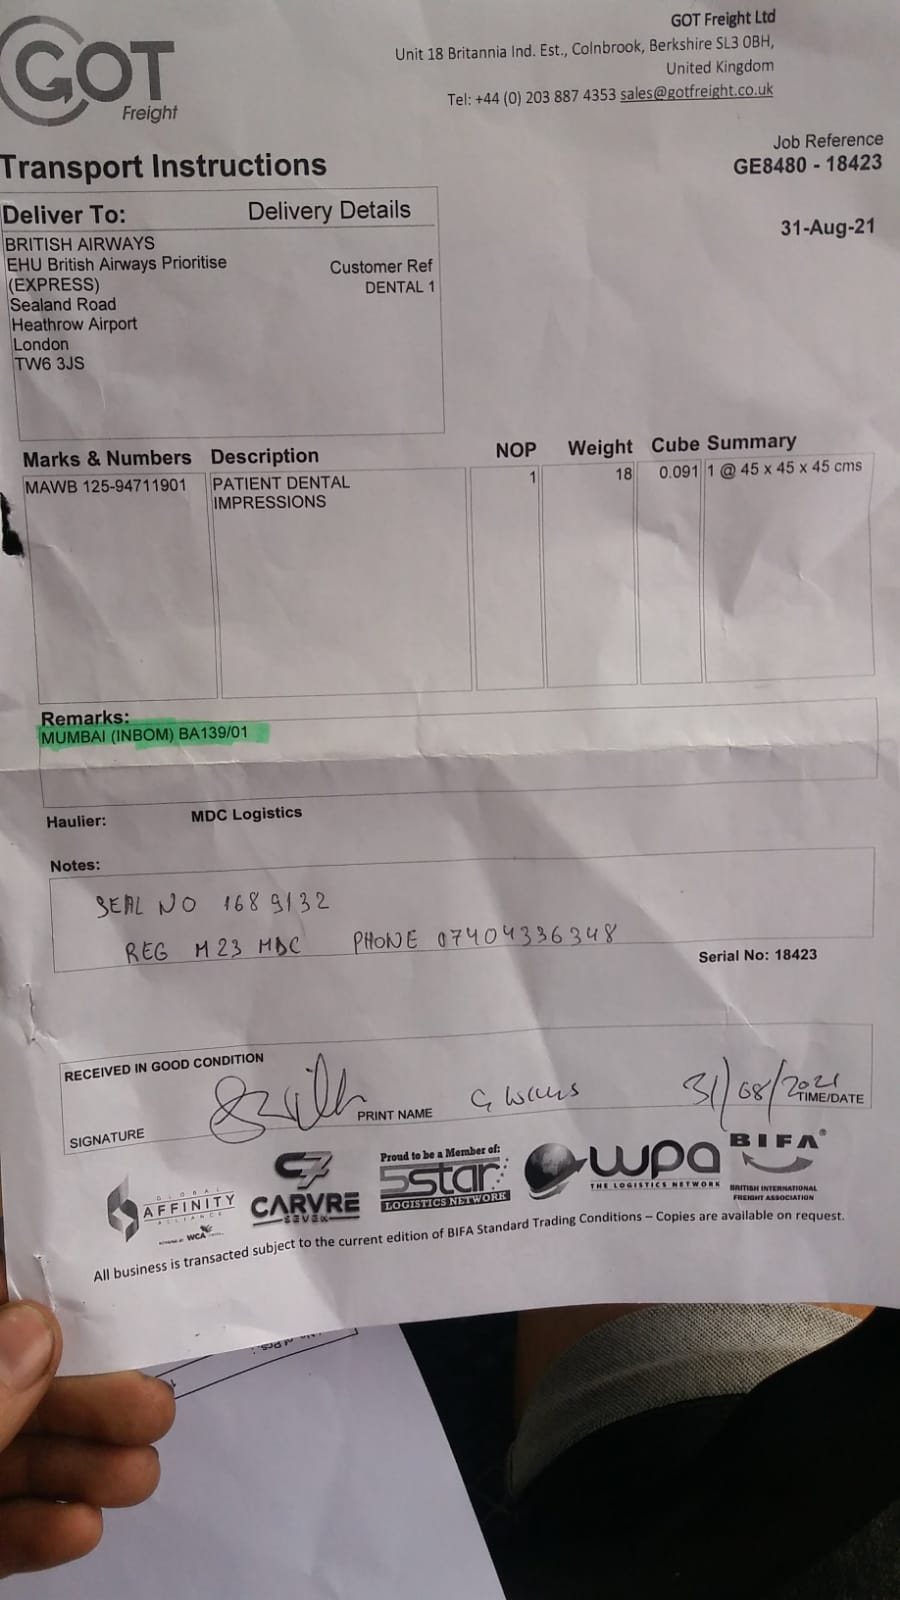 GOT
Freight
GOT Freight Ltd
Unit 18 Britannia Ind. Est., Colnbrook, Berkshire SL3 0BH,
United Kingdom
Tel: +44 (0) 203 887 4353 sales@gotfreight.co.uk
Job Reference
GE8480 - 18423
Transport Instructions
31-Aug-21
Deliver To: Delivery Details
BRITISH AIRWAYS
EHU British Airways Prioritise
(EXPRESS)
Sealand Road
Heathrow Airport
London
TW6 3JS
Customer Ref
DENTAL 1
Marks & Numbers Description NOP Weight Cube Summary
MAWB 125-94711901 PATIENT DENTAL 1 18 0.091 1 @ 45 x 45 x 45 cms
IMPRESSIONS
Remarks:
MUMBAI (INBOM) BA139/01
Haulier: MDC Logistics
Notes:
SEAL NO 1689132
REG M23 MDC PHONE 07404336348
Serial No: 18423
RECEIVED IN GOOD CONDITION
SIGNATURE PRINT NAME G 31/08/2021 TIME/DATE
GLOBAL
AFFINITY
ALLIANCE
WCA
C7
CARVRE
SEVEN
Proud to be a Member of:
5star
LOGISTICS NETWORK
wpa
THE LOGISTICS NETWORK
BIFA
BRITISH INTERNATIONAL
FREIGHT ASSOCIATION
All business is transacted subject to the current edition of BIFA Standard Trading Conditions – Copies are available on request.